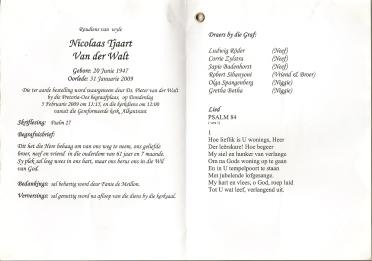 Roudiens van wyle
Nicolaas Tjaart
Van der Walt
Gebore: 20 Junie 1947
Oorlede: 31 Januarie 2009
Die ter aarde bestelling word waargeneem deur Ds. Pieter van der Walt
by die Pretoria-Oos begraafplaas, op Donderdag
5 Februarie 2009 om 11:15, en die kerkdiens om 12:00
vanuit die Gereformeerde kerk,
Skriflesing: Psalm 27
Begrafnisbrief:
Dit het die Here behaag om van ons weg te neem, ons geliefde
broer, neef en vriend in die ouderdom van 61 jaar en 7 maande.
Sy plek sal leeg wees in ons hart, maar ons berus ons in die Wil
van God.
Bedankings: sal behartig word deur Tanie de
Verversings: sal genuttig word na afloop van die diens by die kerksaal.
Draers by die Graf:
Ludwig Röder (Neef)
Lorrie Zylstra (Neef)
Sapie Badenhorst (Neef)
Robert Sibanyoni (Vriend & Broer)
Olga Spangenberg (Niggie)
Gretha Botha (Niggie)
Lied
PSALM 84
1
Hoe lieflik is U wonings, Heer
Der leërskare! Hoe begeer
My siel en hunker van verlange
Om na Gods woning op te gaan
En in U tempelpoort te staan
Met jubelende lofgesange.
My hart en vlees, o God, roep luid
Tot U wat leef, verlangend uit.